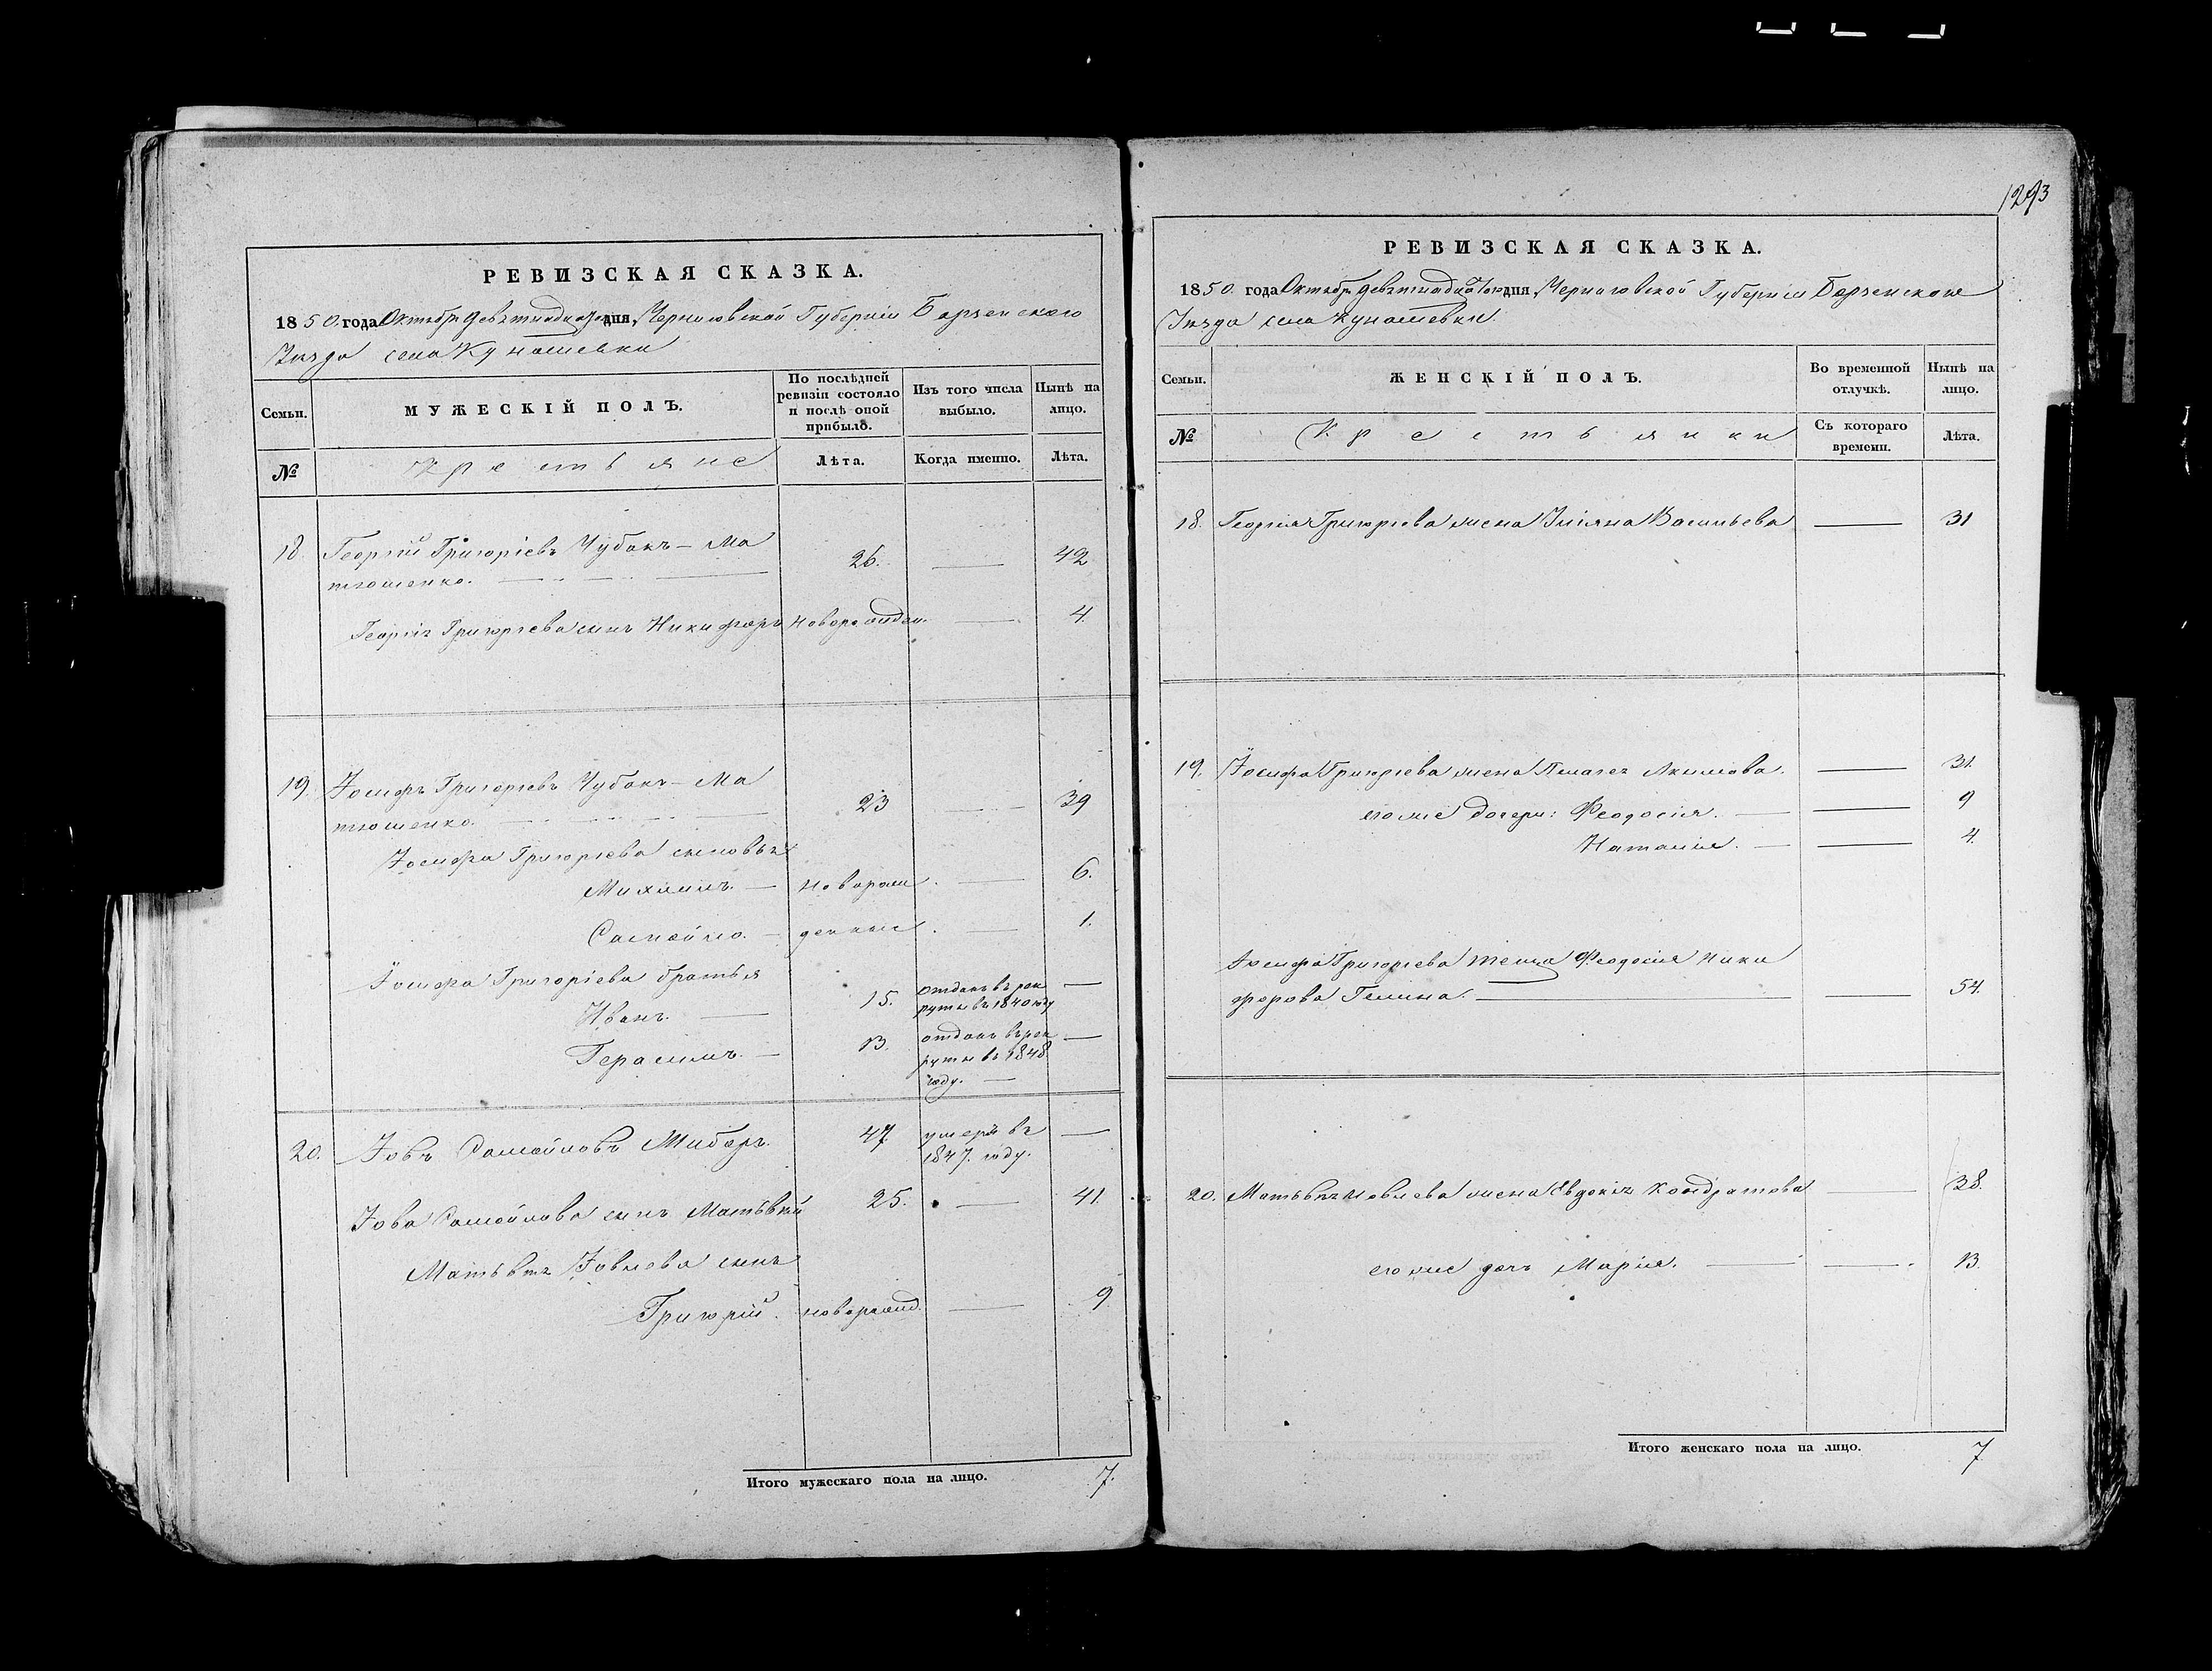 1293
РЕВИЗСКАЯ СКАЗКА.
1850. года Октября девятнадцатого дня, Черниговской Губерніи Борзенского
Уезда села Кунашевки
Семьи.
МУЖЕСКІЙ ПОЛЪ.
По послѣдней ревизіи состояло и послѣ оной прибыло.
Изъ того числа выбыло.
Нынѣ на лицо.
№
Крестьяне
Лѣта.
Когда именно.
Лѣта.
18. Георгій Григоріевъ Чубакъ - Ма
тюшенко. 26. 42
Георгія Григорьева сынъ Никифоръ новорожден. 4.
19. Іосифъ Григоріевъ Чубакъ - Ма
тюшенко. 23 39
Іосифа Григорьева сыновья
Михаилъ. новорож 6.
Самойло. денные 1.
Іосифа Григоріева братья
Иванъ. 15. отданъ въ рек
руты въ 1840 году
Герасимъ. 13. отданъ въ рек
руты въ 1848
году.
20. Іовъ Самойловъ 47 умеръ въ
1847. году.
Іова Самойлова сынъ Матвѣй 25. 41.
Матвѣя Іовлева сынъ
Григорій. новорожд. 9.
Итого мужескаго пола на лицо. 7.
РЕВИЗСКАЯ СКАЗКА.
1850. года Октября девятнадцатого дня, Черниговской Губерніи Борзенского
Уезда села Кунашевки.
Семьи.
ЖЕНСКІЙ ПОЛЪ.
Во временной отлучкѣ.
Нынѣ на лицо.
№
Крестьянки
Съ котораго времени.
Лѣта.
18. Георгія Григорьева жена Уліяна Васильева 31
19. Іосифа Григорьева жена Пелагея Акимова. 31.
его же дочери: Феодосія. 9
Наталія. 4.
Іосифа Григорьева теща Феодосія Ники
форова 54.
20. Матвѣя Іовлева жена Евдокія Кондратова 38.
его же дочь Марія. 13.
Итого женскаго пола на лицо. 7